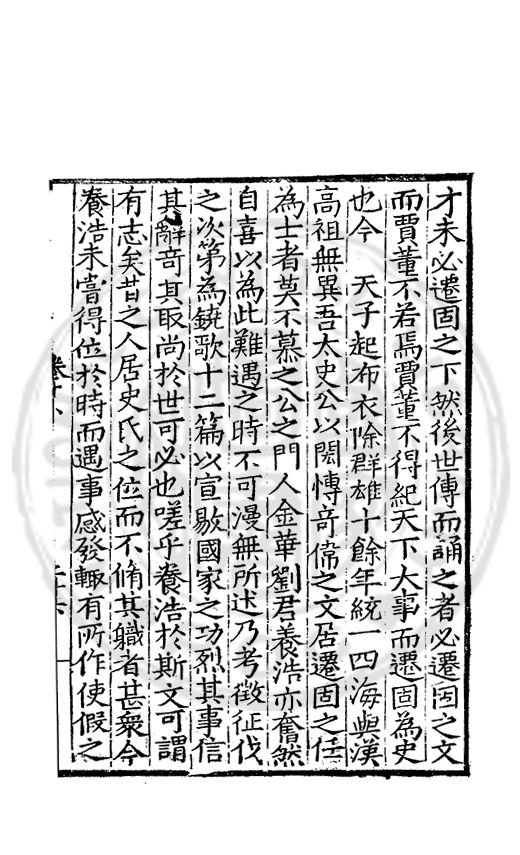 才未必遷固之下然後世傳而誦之者必遷固之文
而賈董不若焉賈董不得紀天下大事而遷固為史
也今　天子起布衣除群雄十餘年統一四海與漢
高祖無異吾太史公以閎博奇偉之文居遷固之任
為士者莫不慕之公之門人金華劉君養浩亦奮然
自喜以為此難遇之時不可漫無所述乃考徵征伐
之次第為鐃歌十二篇以宣敭國家之功烈其事信
其辭奇其取尚於世可必也嗟乎養浩於斯文可謂
有志矣昔之人居史氏之位而不脩其職者甚衆今
養浩未嘗得位於時而遇事感發輙有所作使假之